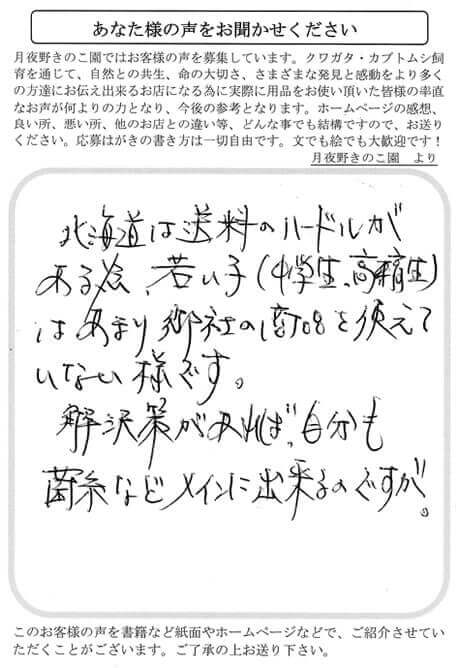 あなた様の声をお聞かせください
月夜野きのこ園ではお客様の声を募集しています。クワガタ・カブトムシ飼
育を通じて、自然との共生、命の大切さ、さまざまな発見と感動をより多く
の方達にお伝え出来るお店になる為に実際に用品をお使い頂いた皆様の率直
なお声が何よりの力となり、今後の参考となります。ホームページの感想、
良い所、悪い所、他のお店との違い等、どんな事でも結構ですので、お送り
ください。応募はがきの書き方は一切自由です。文でも絵でも大歓迎です！
月夜野きのこ園　より
北海道は送料のハードルが
ある為、若い子(中学生、高校生)
はあまり御社の商品を使えて
いない様です。
解決策があれば、自分も
菌糸などメインに出来るのですが。
このお客様の声を書籍など紙面やホームページなどで、ご紹介させてい
ただくことがございます。ご了承の上お送り下さい。